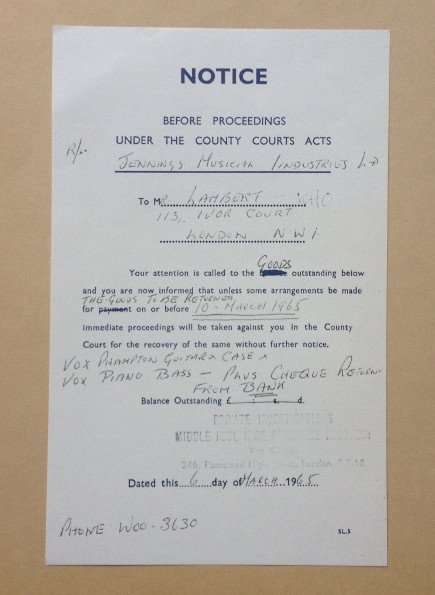 NOTICE
BEFORE PROCEEDINGS
UNDER THE COUNTY COURTS ACTS
R/o.
JENNINGS MUSICIAL INDUSTRIES LTD
To Mr LAMBERT –
113, IVOR COURT
LONDON N W 1
GOODS
Your attention is called to the outstanding below
and you are now informed that unless some arrangements be made
THE GOODS TO BE RETURNED
for payment on or before 10 - MARCH 1965
immediate proceedings will be taken against you in the County
Court for the recovery of the same without further notice.
VOX PHAMPTON GUITAR & CASE x
VOX PIANO BASS – PLUS CHEQUE RETURN
FROM BANK
Balance Outstanding £ : s. d.
PRIVATE INVESTIGATIONS
MIDDLE POOL
246, Plumstead High Street, London, S.E.18
Dated this 6 day of MARCH 1965
PHONE WOO - 3630
SL5